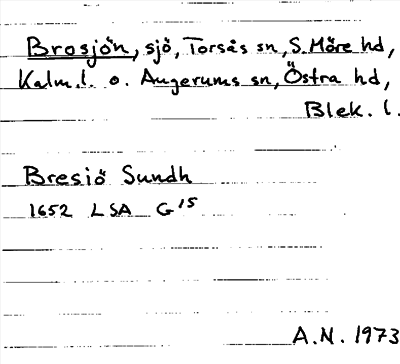 Brosjön, sjö, Torsås sn, S. Möre hd,
Kalm. l. o. Augerums sn, Östra hd,
Blek. l.
Bresiö Sundh
1652 LSA G 15
A.N. 1973